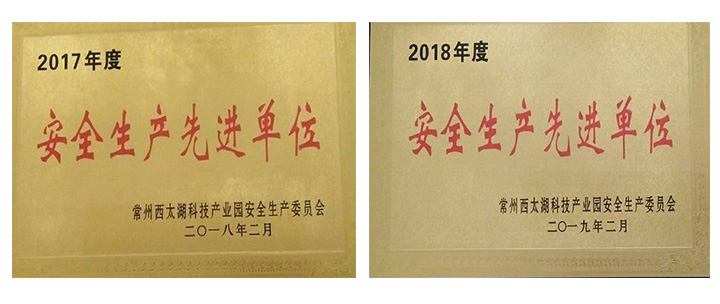 2017年度
安全生产先进单位
常州西太湖科技产业园安全生产委员会
二〇一八年二月
2018年度
安全生产先进单位
常州西太湖科技产业园安全生产委员会
二〇一九年二月